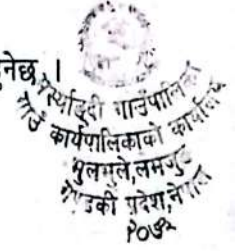 नेछ ।
मर्स्याङ्दी गाउँपालिका
गाउँ कार्यपालिकाको कार्यालय
भुलभुले,लमजुङ
गण्डकी प्रदेश,नेपाल
२०७३